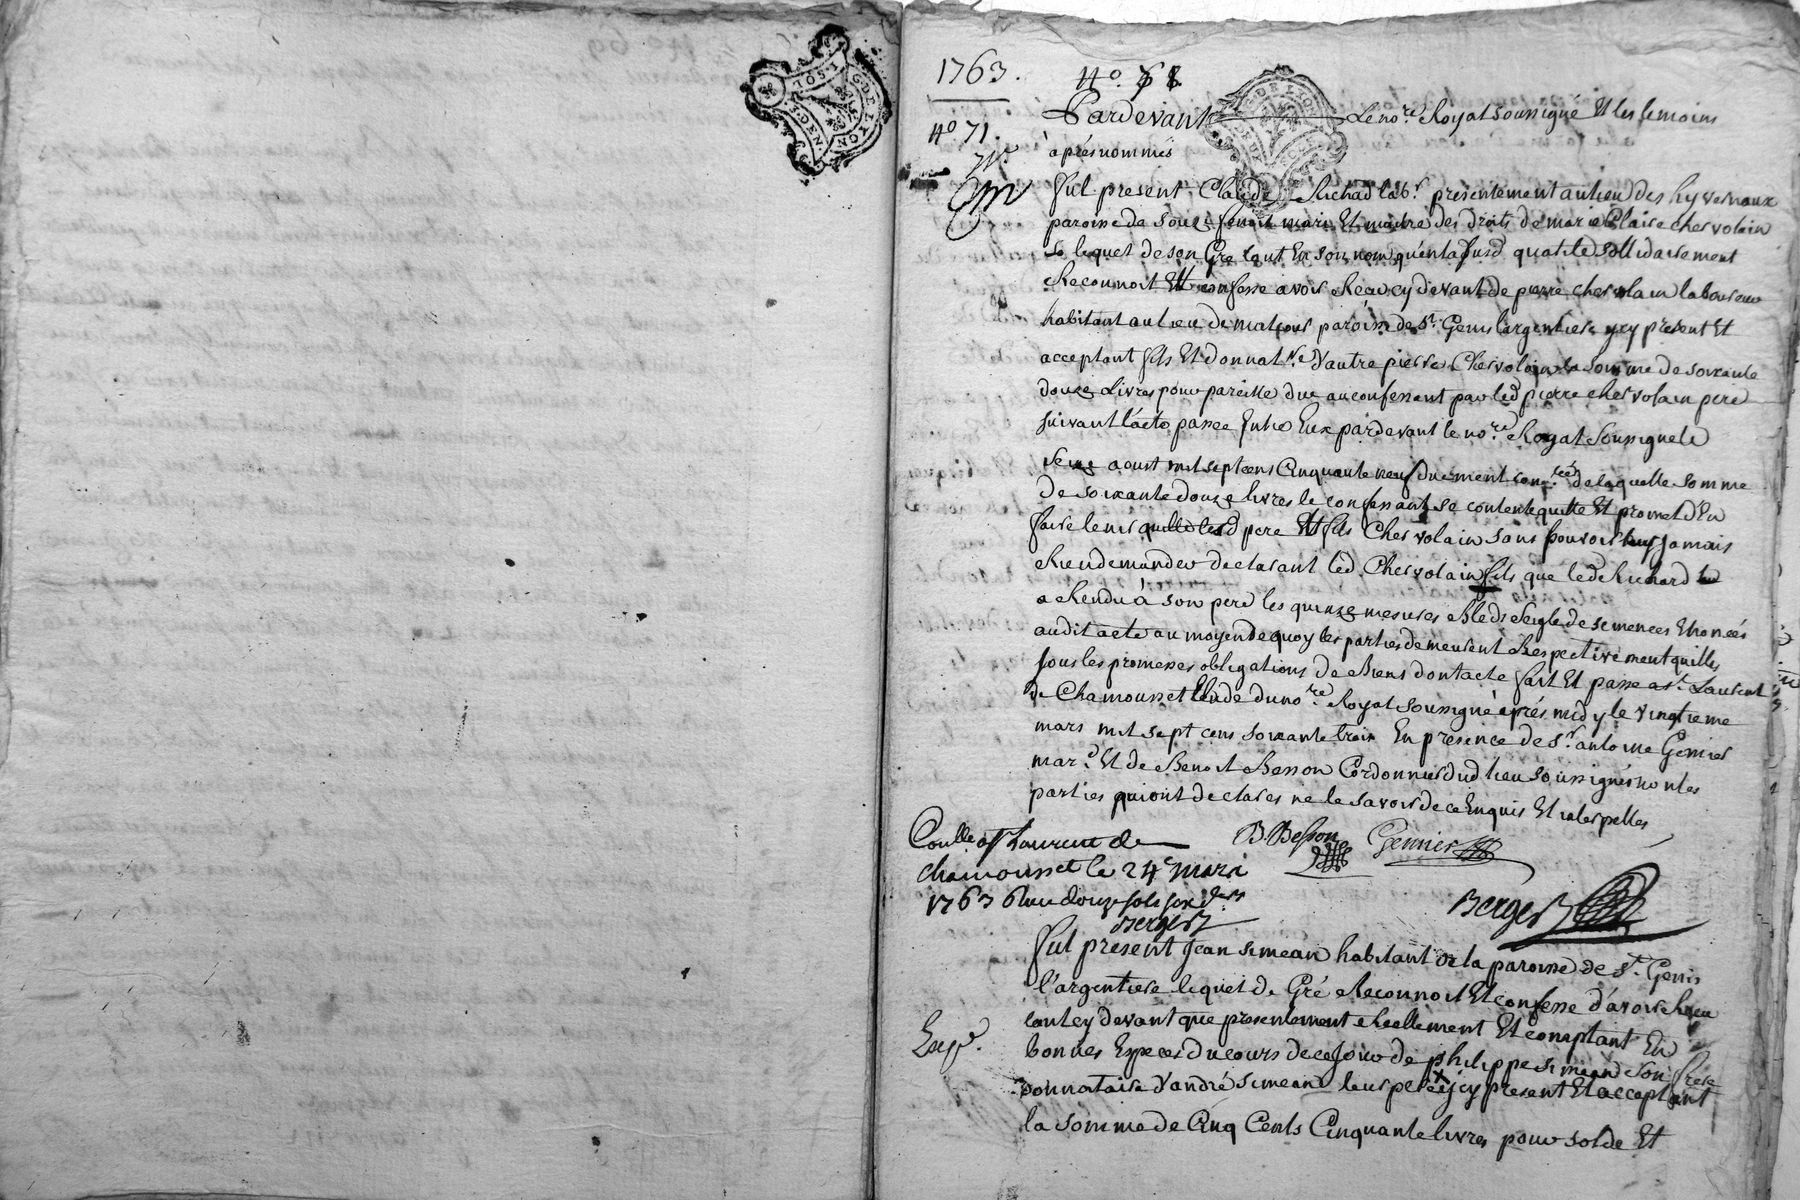 1763.
N° 71.
Pardevant Le no.re Royal soussigné Et les temoins
après nommés
fut present Claude Richad lab.r presentement au lieu des hyvernaux
paroisse de souzi benoit mari Et maitre des droits de marie Claire Chervolain
lequel de son Gré tant En son nom qu'en lad. qualité sollidairement
Reconnoit Et confesse avoir Recu cy devant de pierre chervolain laboureur
habitant au lieu de paroisse de St. Genis l'argentiere ycy present Et
acceptant fils Et donnat.re d'autre pierre Chervolain la somme de soixante
douze Livres pour pareille due au confessant par led pierre chervolain pere
suivant l'acte passée Entre Eux pardevant le no.re Royal soussigné le
seize aoust mil sept cens Cinquante neuf duement con.lée de laquelle somme
de soixante douze livres le confessant se contente quitte Et promet d'En
faire tenir quitte lesd pere Et fils Chervolain sans pouvoir jamais
Rien demander declarant led. Chervolain fils que led Richard
a Rendu à son pere les quinze mesures Bled seigle de semences Enoncés
audit acte au moyen de quoy les parties demeurent Respectivement quittes
sous les promesses obligations de Biens dont acte fait Et passé a St. Laurent
de Chamousset Etude du no.re Royal soussigné après midy le vingtieme
mars mil sept cens soixante trois En presence de Sr. antoine Genier
mar.d Et de Benoit Besson Cordonnier dud lieu soussignés non les
parties qui ont declarés ne le savoir de ce Enquis Et interpellés
B. Besson Genier
Conllé a St Laurent de
chamousset le 24e mars
1763 Reçu douze sols six d.ers
Berger
Berger
fut present Jean simean habitant de la paroisse de St. Genis
l'argentiere lequel de Gré Reconnoit Et confesse d'avoir Reçu
tant cy devant que presentement Reellement Et comptant En
Exp.é
bonnes Especes du cours de ce Jour de philippe simeand son frere
donnataire d'andré simeand leur pere ycy present Et acceptant
la somme de Cinq Cents Cinquante livres pour solde Et